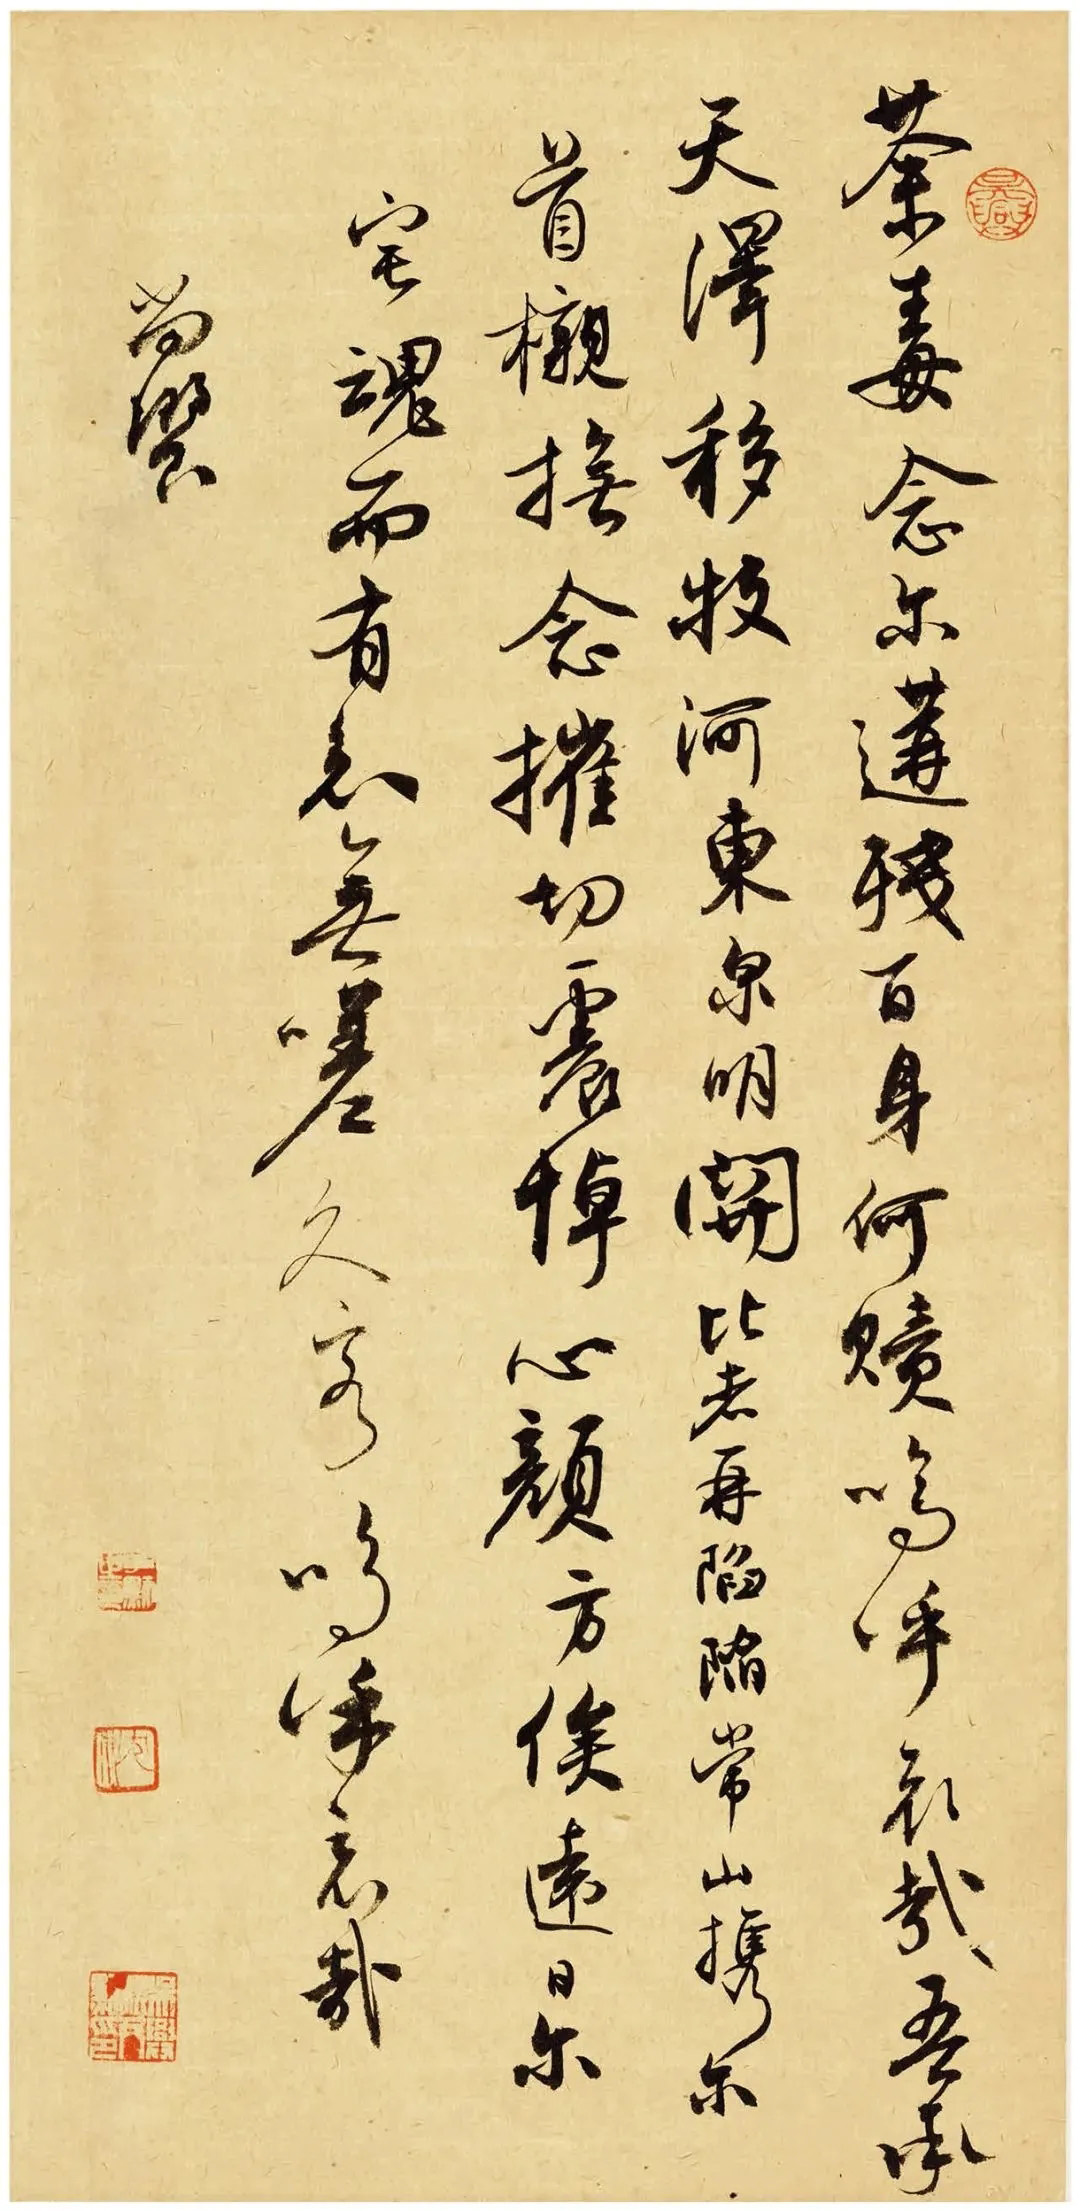 荼毒念尔遘殘百身何贖嗚呼哀哉吾承
天澤移牧河東泉明開比者再陷陷常山攜尔
首櫬撫念摧切震悼心顏方俟遠日尔
宅魂而有無嗟久客嗚呼哀哉
尚饗